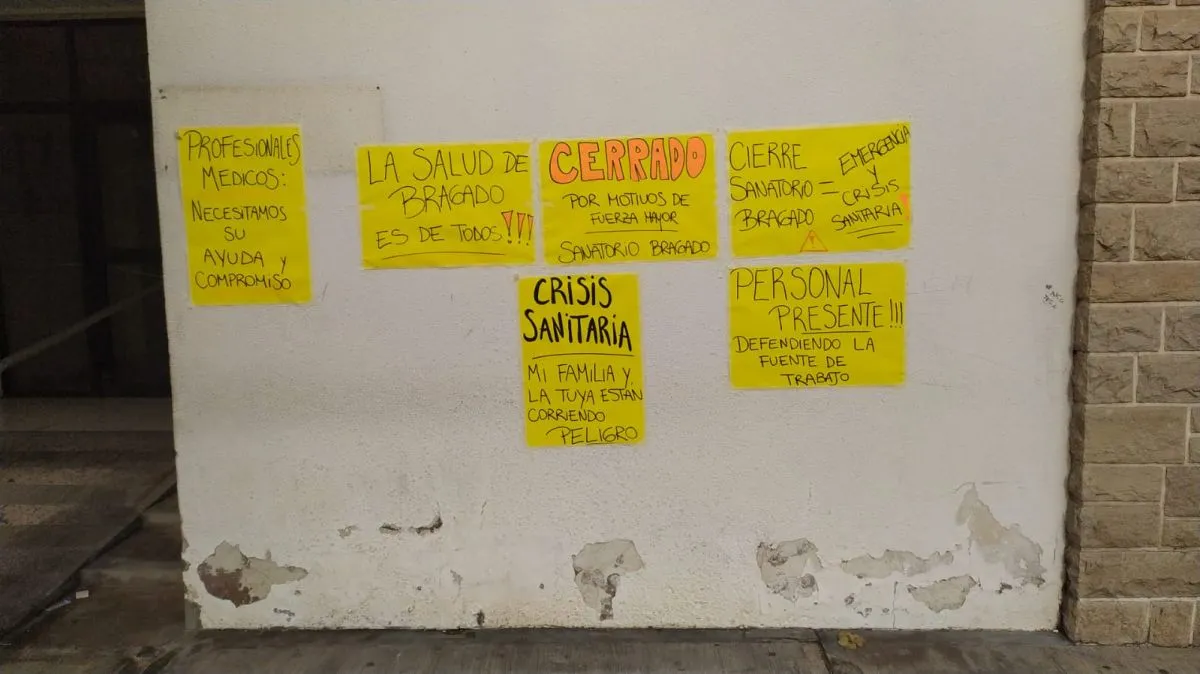 PROFESIONALES
MEDICOS:
NECESITAMOS
SU
AYUDA Y
COMPROMISO
LA SALUD DE
BRAGADO
ES DE TODOS!!!
CERRADO
POR MOTIVOS DE
FUERZA MAYOR
SANATORIO BRAGADO
CIERRE
SANATORIO =
BRAGADO
EMERGENCIA
Y
CRISIS
SANITARIA
CRISIS
SANITARIA
MI FAMILIA Y
LA TUYA ESTÁN
CORRIENDO
PELIGRO
PERSONAL
PRESENTE!!!
DEFENDIENDO LA
FUENTE DE
TRABAJO